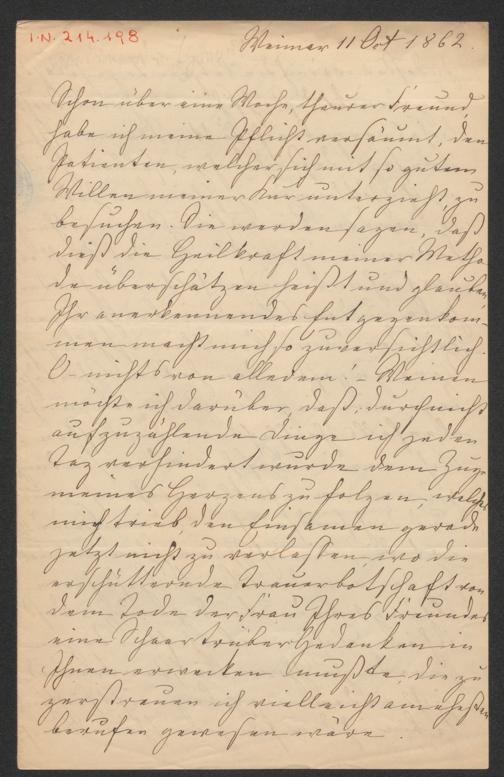 I.N. 214.198
Weimar 11 Oct 1862.
Schon über eine Woche, theurer Freund,
habe ich meine Pflicht versäumt, den
Patienten, welcher sich mit so gutem
Willen meiner Kur unterzieht, zu
besuchen. Sie werden sagen, daß
dieß die Heilkraft meiner Metho-
de überschätzen heißt und glauben,
Ihr anerkennendes Entgegenkom-
men macht mich so zuversichtlich.
O nichts von alledem! – Weinen
möchte ich darüber, daß, durch nicht
aufzuzählende Dinge ich jeden
Tag verhindert wurde dem Zuge
meines Herzens zu folgen, welches
mich trieb, den Einsamen gerade
jetzt nicht zu verlassen, wo die
erschütternde Trauerbotschaft von
dem Tode der Frau Ihres Freundes
eine Schaar trüber Gedanken in
Ihnen erwecken mußte, die zu
zerstreuen ich vielleicht am ehesten
berufen gewesen wäre.